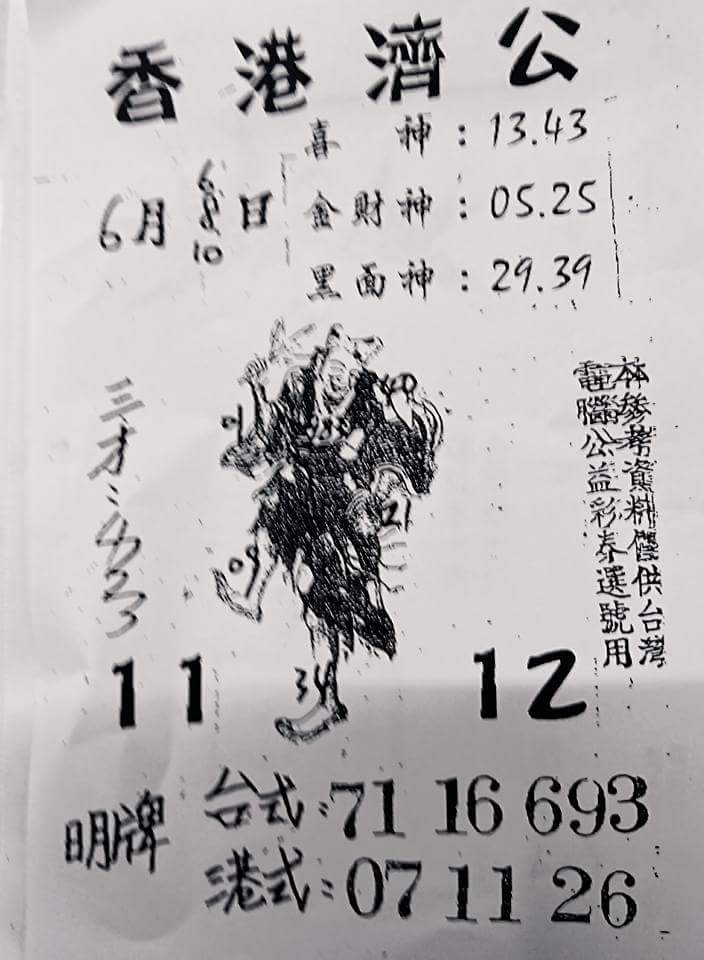 香港濟公
喜神：13.43
金財神：05.25
黑面神：29.39
6月6 8 10日
本參考資料僅供台灣
電腦公益彩券選號用
三才：
40
21
09
34
11
12
明牌
台式：71 16 693
港式：07 11 26